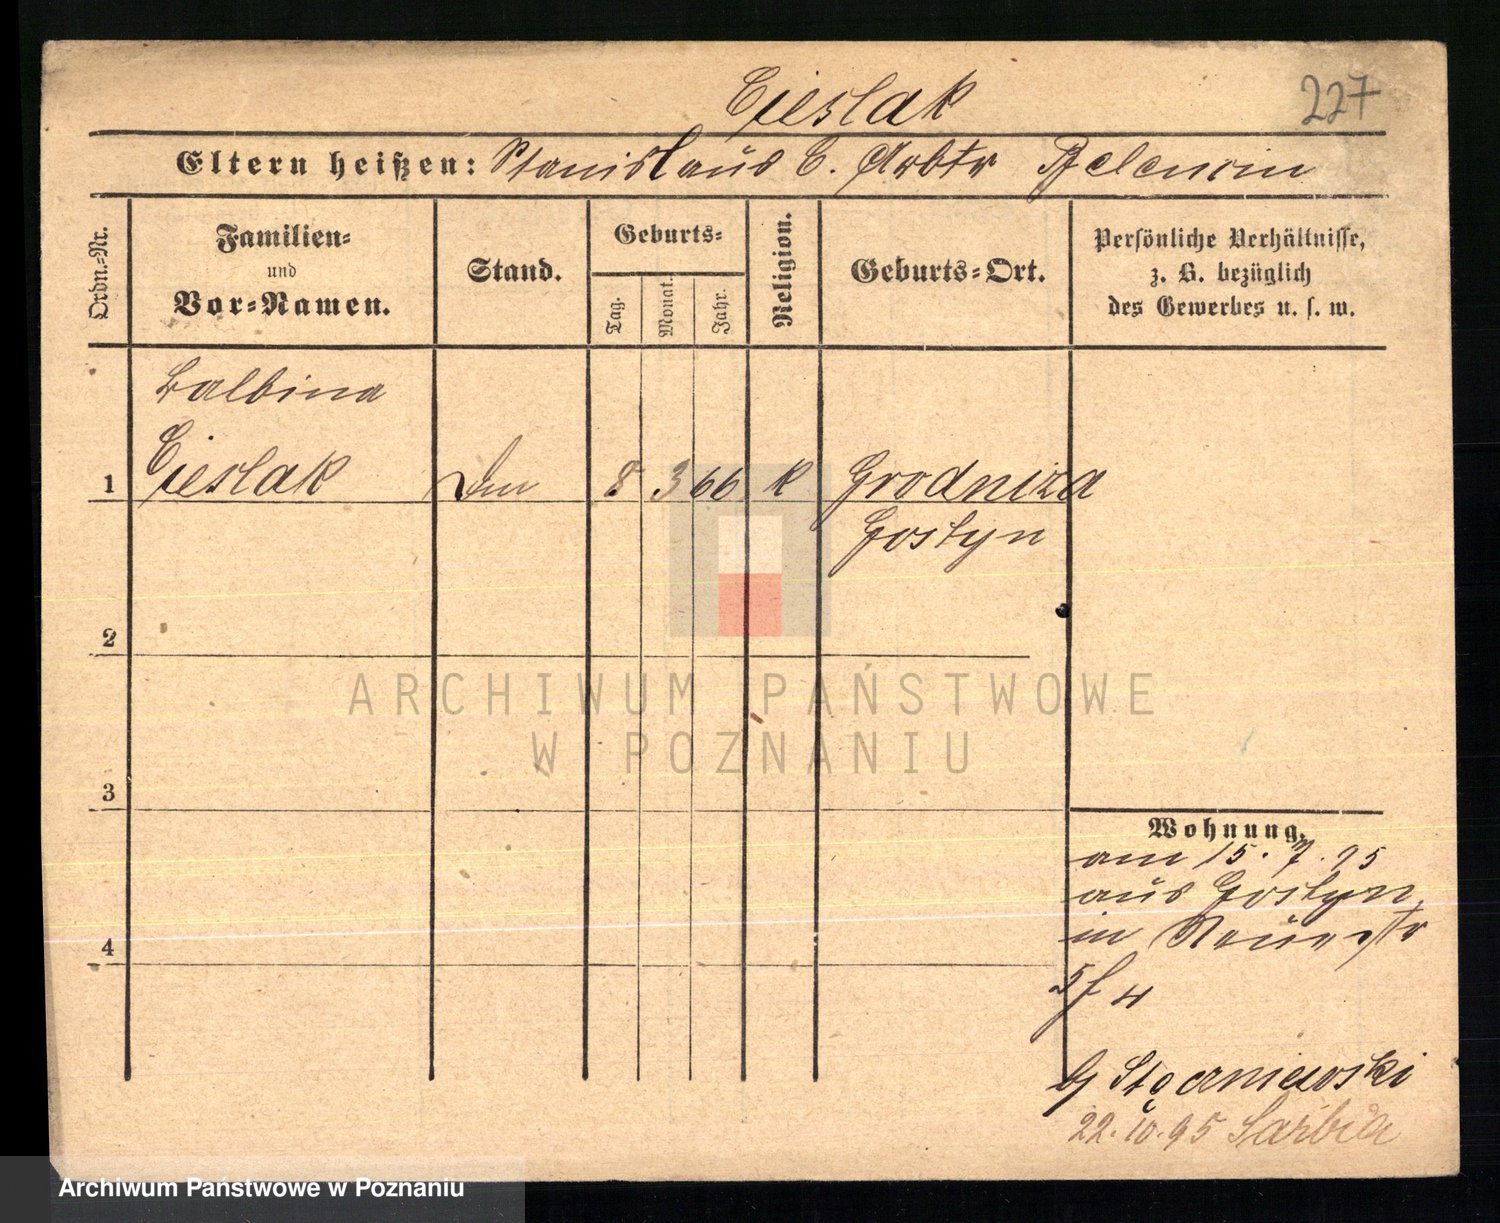 Cieslak 227
Eltern heißen: Stanislaus C. Arbtr Belencin
Ordn.-Nr.
Familien-
und
Vor-Namen.
Stand.
Geburts-
Tag.
Monat.
Jahr.
Religion.
Geburts-Ort.
Persönliche Verhältnisse,
z. B. bezüglich
des Gewerbes u. s. w.
Balbina
1 Cieslak 8 3 66 K Grodnica
Gostyn
2
3
4
ARCHIWUM PAŃSTWOWE
W POZNANIU
Wohnung.
am 15. 7. 95
aus Gostyn
in Neuestr
22.10.95
Archiwum Państwowe w Poznaniu